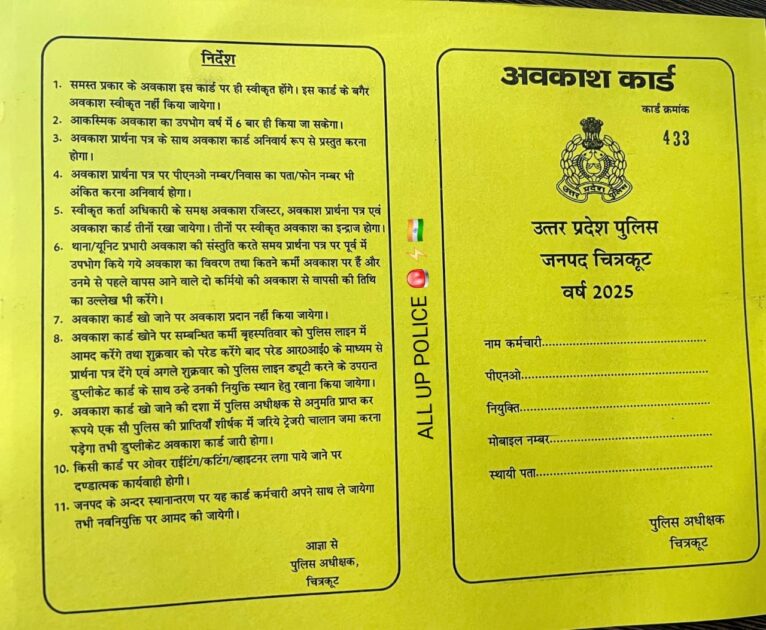 निर्देश
1. समस्त प्रकार के अवकाश इस कार्ड पर ही स्वीकृत होंगे। इस कार्ड के बगैर
अवकाश स्वीकृत नहीं किया जायेगा।
2. आकस्मिक अवकाश का उपभोग वर्ष में 6 बार ही किया जा सकेगा।
3. अवकाश प्रार्थना पत्र के साथ अवकाश कार्ड अनिवार्य रूप से प्रस्तुत करना
होगा।
4. अवकाश प्रार्थना पत्र पर पीएनओ नम्बर/निवास का पता/फोन नम्बर भी
अंकित करना अनिवार्य होगा।
5. स्वीकृत कर्ता अधिकारी के समक्ष अवकाश रजिस्टर, अवकाश प्रार्थना पत्र एवं
अवकाश कार्ड तीनों रखा जायेगा। तीनों पर स्वीकृत अवकाश का इन्द्राज होगा।
6. थाना/यूनिट प्रभारी अवकाश की संस्तुति करते समय प्रार्थना पत्र पर पूर्व में
उपभोग किये गये अवकाश का विवरण तथा कितने कर्मी अवकाश पर हैं और
उनमे से पहले वापस आने वाले दो कर्मियो की अवकाश से वापसी की तिथि
का उल्लेख भी करेंगे।
7. अवकाश कार्ड खो जाने पर अवकाश प्रदान नहीं किया जायेगा।
8. अवकाश कार्ड खोने पर सम्बन्धित कर्मी बृहस्पतिवार को पुलिस लाइन में
आमद करेंगे तथा शुक्रवार को परेड करेंगे बाद परेड आर0आई0 के माध्यम से
प्रार्थना पत्र देंगे एवं अगले शुक्रवार को पुलिस लाइन ड्यूटी करने के उपरान्त
डुप्लीकेट कार्ड के साथ उन्हे उनकी नियुक्ति स्थान हेतु रवाना किया जायेगा।
9. अवकाश कार्ड खो जाने की दशा में पुलिस अधीक्षक से अनुमति प्राप्त कर
रूपये एक सौ पुलिस की प्राप्तियाँ शीर्षक में जरिये ट्रेजरी चालान जमा करना
पड़ेगा तभी डुप्लीकेट अवकाश कार्ड जारी होगा।
10. किसी कार्ड पर ओवर राईटिंग/कटिंग/व्हाइटनर लगा पाये जाने पर
दण्डात्मक कार्यवाही होगी।
11. जनपद के अन्दर स्थानान्तरण पर यह कार्ड कर्मचारी अपने साथ ले जायेगा
तभी नवनियुक्ति पर आमद की जायेगी।
आज्ञा से
पुलिस अधीक्षक,
चित्रकूट
ALL UP POLICE 🚨⚡🇮🇳
अवकाश कार्ड
कार्ड क्रमांक
433
उत्तर प्रदेश पुलिस
उत्तर प्रदेश पुलिस
जनपद चित्रकूट
वर्ष 2025
नाम कर्मचारी........................................
पीएनओ..............................................
नियुक्ति..............................................
मोबाइल नम्बर........................................
स्थायी पता...........................................
पुलिस अधीक्षक
चित्रकूट